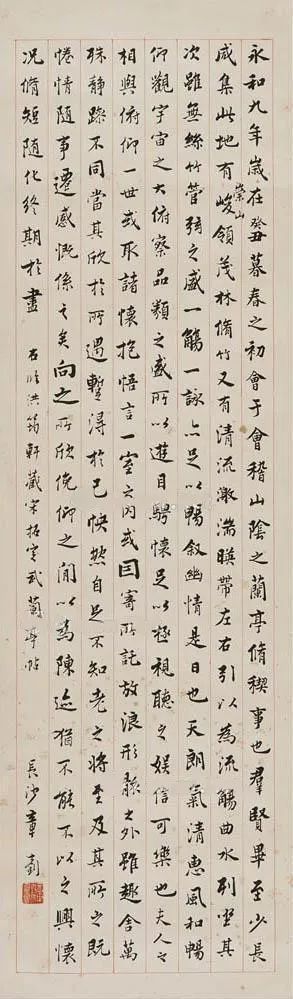 永和九年歲在癸丑暮春之初會于會稽山陰之蘭亭脩稧事也羣賢畢至少長
咸集此地有崇山峻領茂林脩竹又有清流激湍暎帶左右引以為流觴曲水列坐其
次雖無絲竹管弦之盛一觴一詠亦足以暢敘幽情是日也天朗氣清惠風和暢
仰觀宇宙之大俯察品類之盛所以遊目騁懷足以極視聽之娛信可樂也夫人之
相與俯仰一世或取諸懷抱悟言一室之內或因寄所託放浪形骸之外雖趣舍萬
殊靜躁不同當其欣於所遇蹔得於己怏然自足不知老之將至及其所之既
惓情隨事遷感慨係之矣向之所欣俛仰之閒以為陳迹猶不能不以之興懷
況脩短隨化終期於盡 右臨洪筠軒藏宋拓定武蘭亭帖 長沙章